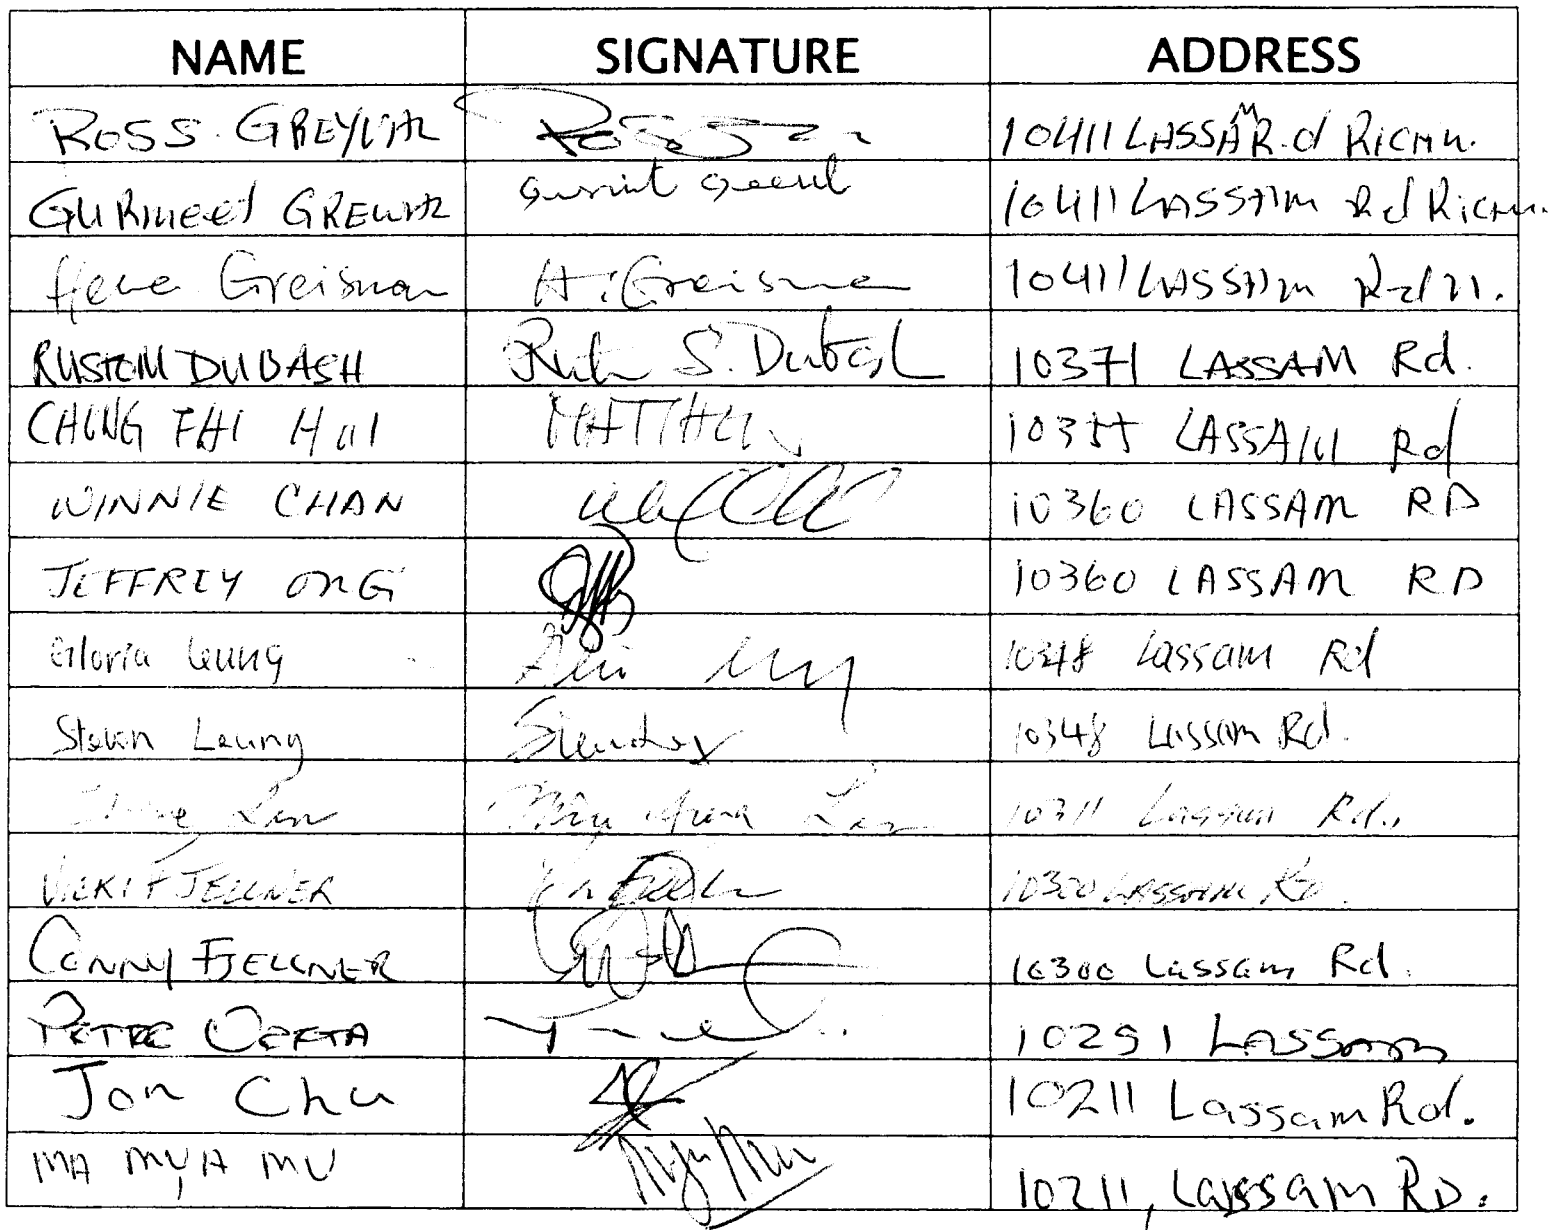 NAME SIGNATURE ADDRESS
ROSS. GREYWAL 10411 LASSAM Rd RICHM.
GURMEET GREWAL 10411 LASSAM Rd RICHM.
Greisman H. Greisman 10411 LASSAM Rd
RUSTOM DUBASH S. Dubash 10371 LASSAM Rd.
CHUNG TAI HUI MATTHEW 10355 LASSAM Rd
WINNIE CHAN 10360 LASSAM RD
JEFFREY ONG 10360 LASSAM RD
Gloria Leung 10348 Lassam Rd
Steven Leung 10348 Lassam Rd.
Lin Lin 10311 Lassam Rd.,
VICKI FJELLNER 10300 LASSAM RD.
CONNY FJELLNER 10300 Lassam Rd.
PETRE 10291 LASSAM
Jon Chu 10211 Lassam Rd.
MA MYA MU 10211, Lassam RD.